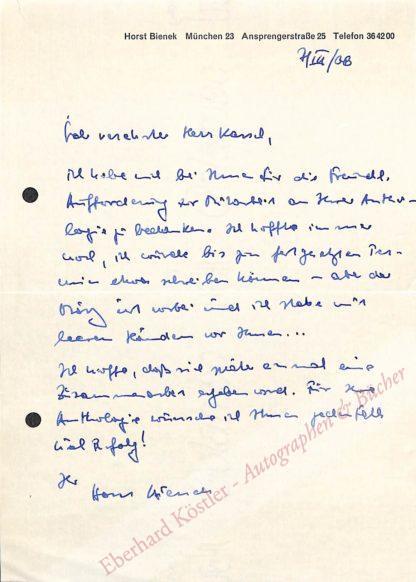 Horst Bienek München 23 Ansprengerstraße 25 Telefon 364200
Sehr verehrter Herr
ich habe mich bei Ihnen für die freundl.
Aufforderung zur Mitarbeit an Ihrer Antho-
logie zu bedanken. Ich hoffte immer
noch, ich würde bis zum festgesetzten Ter-
min etwas schreiben können – aber der
März ist vorbei und ich stehe mit
leeren Händen vor Ihnen...
Ich hoffe, daß sich später einmal eine
Zusammenarbeit ergeben wird. Für Ihre
Anthologie wünsche ich Ihnen jedenfalls
viel Erfolg!
Ihr
Horst Bienek
Eberhard Köstler - Autographen & Bücher